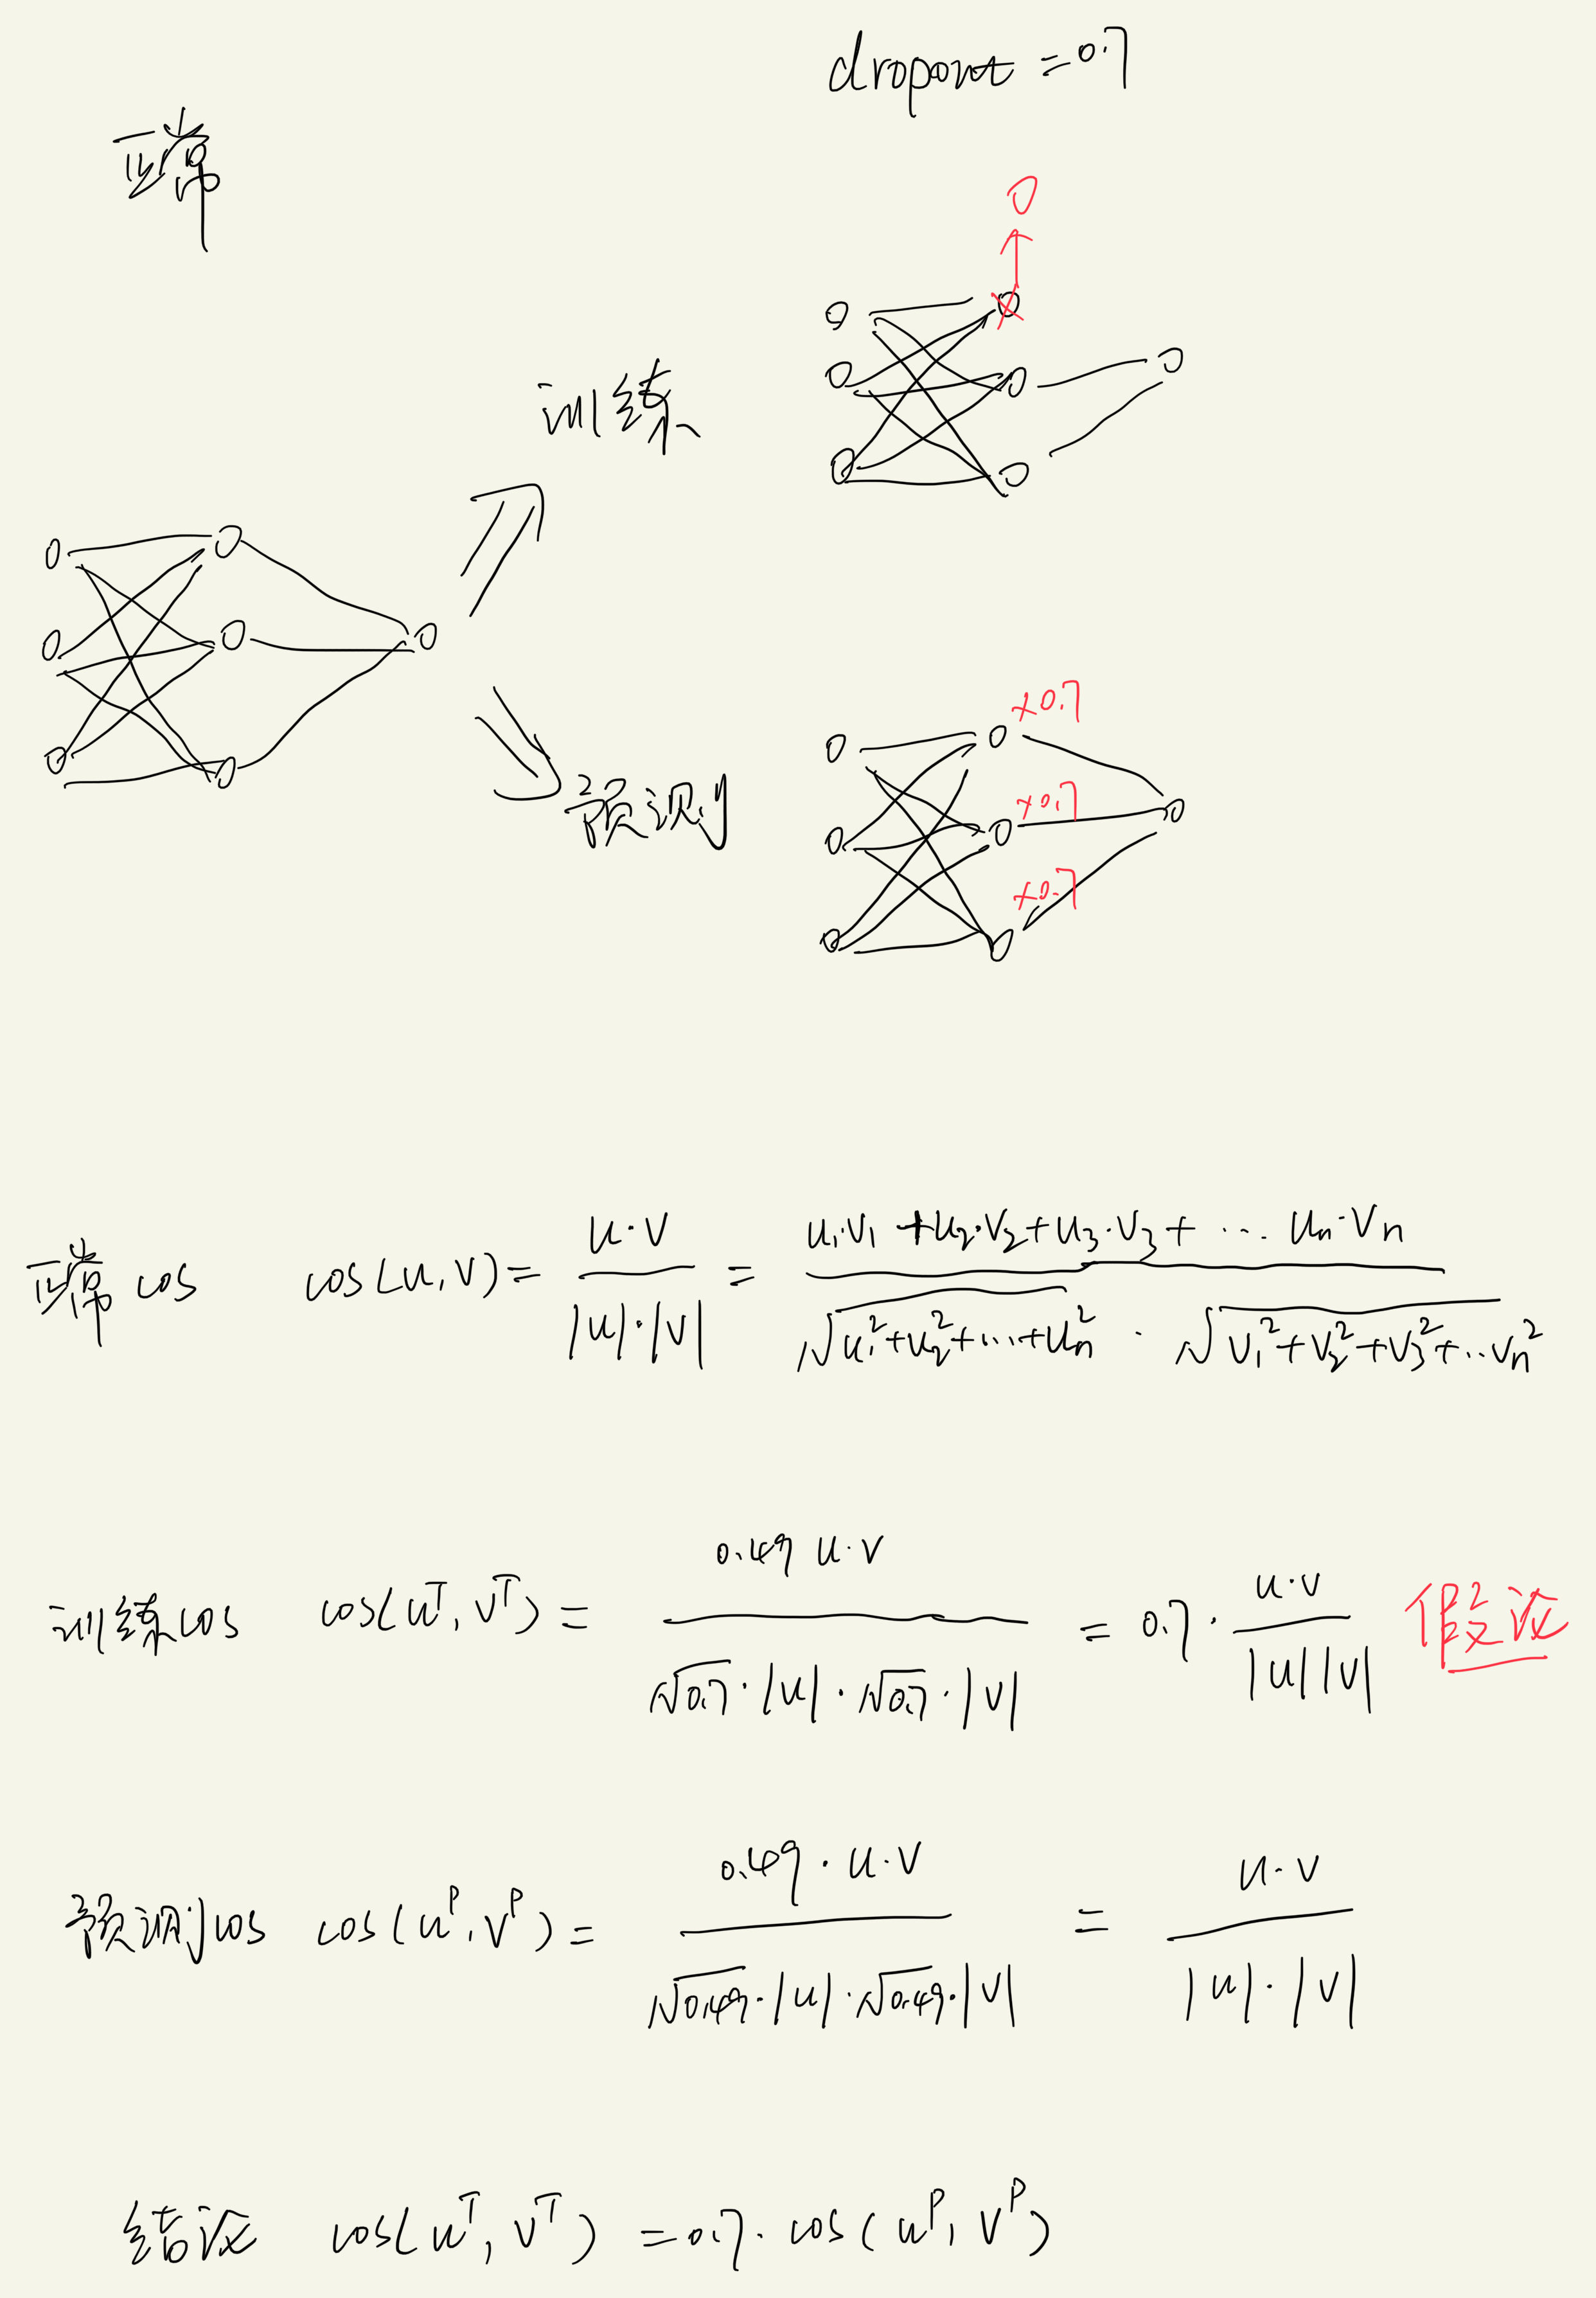 dropout = 0.7
正常
0
训练
×0.7
×0.7
预测
×0.7
正常 cos cos(u,v) = u·v / |u|·|v| = u₁·v₁ + u₂·v₂ + u₃·v₃ + ··· uₙ·vₙ / √(u₁²+u₂²+···+uₙ²) · √(v₁²+v₂²+v₃²+···vₙ²)
训练cos cos(uᵀ, vᵀ) = 0.49 u·v / √0.7·|u|·√0.7·|v| = 0.7· u·v / |u||v| 假设
预测cos cos(uᴾ, vᴾ) = 0.49·u·v / √0.49·|u|·√0.49·|v| = u·v / |u|·|v|
结论 cos(uᵀ, vᵀ) = 0.7· cos(uᴾ, vᴾ)